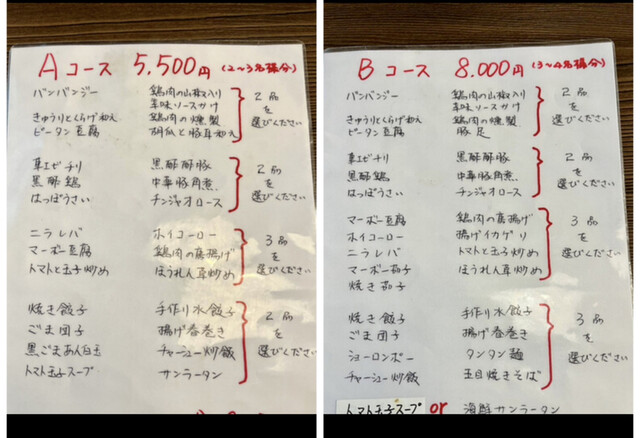 A コース 5,500円 (2〜3名様分)
バンバンジー 鶏肉の山椒入り
辛味ソースかけ
きゅうりとくらげ和え 鶏肉の燻製
ピータン豆腐 胡瓜と豚耳和え
2品を選びください
車エビチリ 黒酢酢豚
黒酢鶏 中華豚角煮
はっぽうさい チンジャオロース
2品を選びください
ニラレバ ホイコーロー
マーボー豆腐 鶏肉の唐揚げ
トマトと玉子炒め ほうれん草炒め
3品を選びください
焼き餃子 手作り水餃子
ごま団子 揚げ春巻き
黒ごまあん白玉 チャーシュー炒飯
トマト玉子スープ サンラータン
2品を選びください
B コース 8.000円 (3〜4名様分)
バンバンジー 鶏肉の山椒入り
辛味ソースかけ
きゅうりとくらげ和え 鶏肉の燻製
ピータン豆腐 豚足
2品を選びください
車エビチリ 黒酢酢豚
黒酢鶏 中華豚角煮
はっぽうさい チンジャオロース
2品を選びください
マーボー豆腐 鶏肉の唐揚げ
ホイコーロー 揚げイカゲソ
ニラレバ トマトと玉子炒め
マーボー茄子 ほうれん草炒め
焼き茄子
3品を選びください
焼き餃子 手作り水餃子
ごま団子 揚げ春巻き
ショーロンポー タンタン麺
チャーシュー炒飯 五目焼きそば
3品を選びください
トマト玉子スープ or 海鮮サンラータン